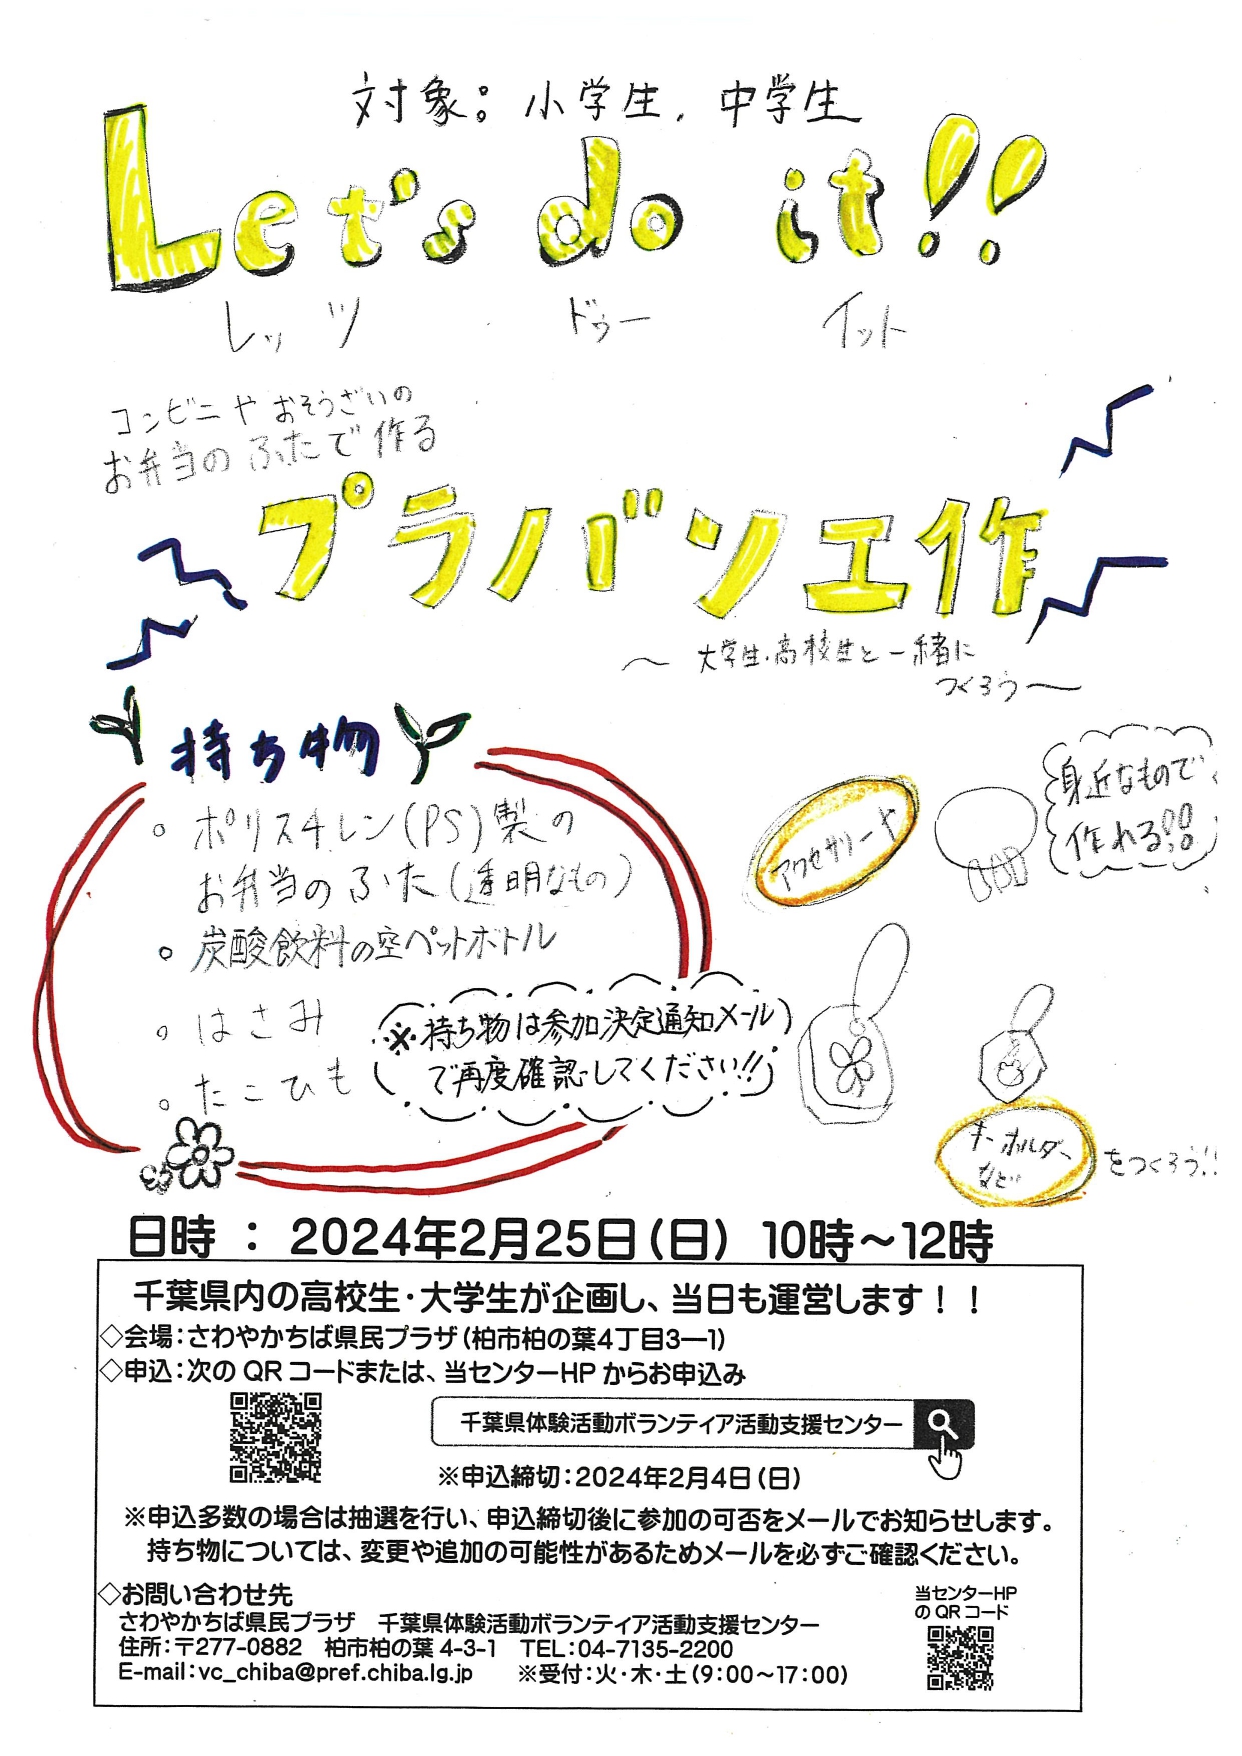 対象：小学生，中学生
Let's do it!!
レッツ ドゥー イット
コンビニやおそうざいの
お弁当のふたで作る
プラバン工作
〜大学生・高校生と一緒に
つくろう〜
持ち物
。ポリスチレン(PS)製の
お弁当のふた(透明なもの)
。炭酸飲料の空ペットボトル
。はさみ
。たこひも
※持ち物は参加決定通知メール
で再度確認してください!!
アクセサリーや
身近なもので
作れる!!
キーホルダー
など
をつくろう!!
日時 ： 2024年2月25日（日） 10時～12時
千葉県内の高校生・大学生が企画し、当日も運営します！！
◇会場：さわやかちば県民プラザ（柏市柏の葉4丁目3―1）
◇申込：次の QR コードまたは、当センターHP からお申込み
千葉県体験活動ボランティア活動支援センター
※申込締切：2024年2月4日（日）
※申込多数の場合は抽選を行い、申込締切後に参加の可否をメールでお知らせします。
持ち物については、変更や追加の可能性があるためメールを必ずご確認ください。
◇お問い合わせ先
さわやかちば県民プラザ 千葉県体験活動ボランティア活動支援センター
住所：〒277-0882 柏市柏の葉 4-3-1 TEL：04-7135-2200
E-mail：vc_chiba@pref.chiba.lg.jp ※受付：火・木・土（9：00～17：00）
当センターHP
の QR コード